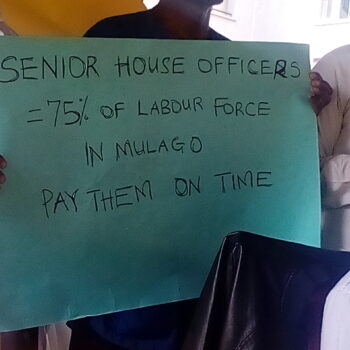 SENIOR HOUSE OFFICERS
=75% OF LABOUR FORCE
IN MULAGO
PAY THEM ON TIME